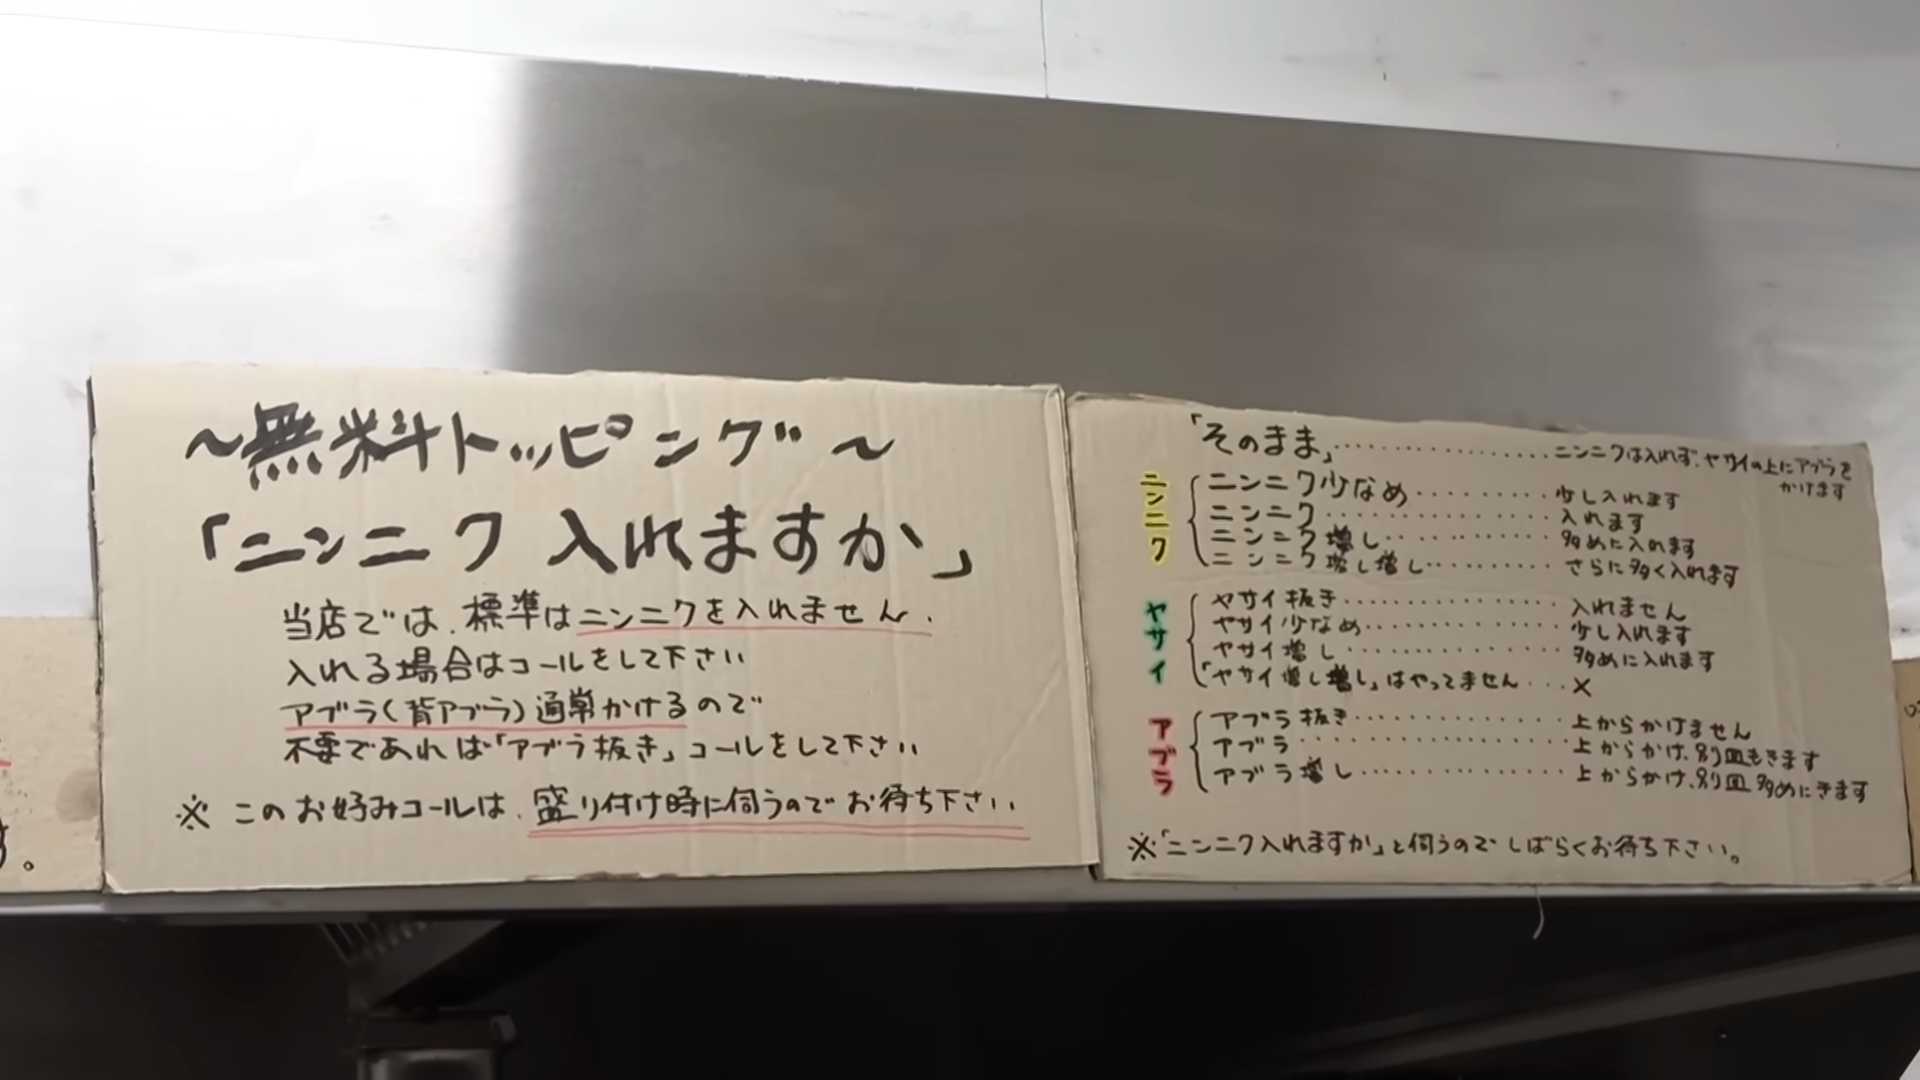 ～無料トッピング～
「ニンニク 入れますか」
当店では、標準はニンニクを入れません.
入れる場合はコールをして下さい
アブラ(背アブラ)通常かけるので
不要であれば「アブラ抜き」コールをして下さい
※ このお好みコールは、盛り付け時に伺うのでお待ち下さい
「そのまま」..................ニンニクは入れず、ヤサイの上にアブラを
かけます
ニンニク
ニンニク少なめ..........少し入れます
ニンニク..................入れます
ニンニク増し..............多めに入れます
ニンニク増し増し..........さらに多く入れます
ヤサイ
ヤサイ抜き................入れません
ヤサイ少なめ..............少し入れます
ヤサイ増し................多めに入れます
「ヤサイ増し増し」はやってません....×
アブラ
アブラ抜き................上からかけません
アブラ....................上からかけ、別皿もきます
アブラ増し................上からかけ、別皿多めにきます
※「ニンニク入れますか」と伺うのでしばらくお待ち下さい。
す。